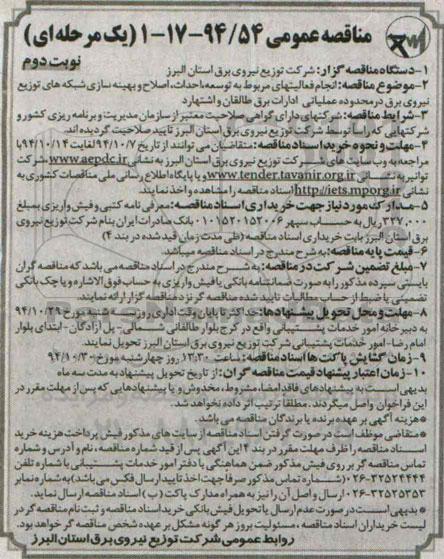 مناقصه عمومی ۹۴/۵۴-۱۷-۱ (یک مرحله ای)
نوبت دوم
۱-دستگاه مناقصه گزار: شرکت توزیع نیروی برق استان البرز
۲-موضوع مناقصه: انجام فعالیتهای مربوط به توسعه احداث، اصلاح و بهینه سازی شبکه های توزیع
نیروی برق در محدوده عملیاتی ادارات برق طالقان و اشتهارد
۳-شرایط مناقصه: شرکتهای دارای گواهی صلاحیت معتبر از سازمان مدیریت و برنامه ریزی کشور و
شرکتهایی که راسا توسط شرکت توزیع نیروی برق استان البرز تایید صلاحیت گردیده اند.
۴-مهلت و نحوه خرید اسناد مناقصه: متقاضیان می توانند از تاریخ ۹۴/۱۰/۷ لغایت ۹۴/۱۰/۱۴ با
مراجعه به وب سایت های شرکت توزیع نیروی برق استان البرز به نشانی www.aepdc.ir، شرکت
توانیر به نشانی www.tender.tavanir.org.ir و یا پایگاه اطلاع رسانی ملی مناقصات کشوری به
نشانی http://iets.mporg.ir اسناد مناقصه را مشاهده و اخذ نمایند.
۵-مدارک مورد نیاز جهت خریداری اسناد مناقصه: معرفی نامه کتبی و فیش واریزی بمبلغ
۳۲۷,۰۰۰ ریال به حساب سپهر ۰۱۰۱۵۲۰۱۵۲۰۰۶ بانک صادرات ایران بنام شرکت توزیع نیروی
برق استان البرز بابت خریداری اسناد مناقصه (طی مدت زمان قید شده در بند ۴)
۶-قیمت پایه مناقصه: به شرح مندرج در اسناد مناقصه میباشد.
۷-مبلغ تضمین شرکت در مناقصه: به شرح مندرج در اسناد مناقصه می باشد که مناقصه گران
بایستی سپرده مذکور را به صورت ضمانتنامه بانکی یا فیش واریزی به حساب فوق الاشاره و یا چک بانکی
تضمینی یا ضبط از حساب مطالبات تایید شده مناقصه گر نزد مناقصه گزار ارائه نمایند.
۸-مهلت و محل تحویل پیشنهادها: حداکثر تا پایان وقت اداری روز سه شنبه مورخ ۹۴/۱۰/۲۹
به دبیرخانه امور خدمات پشتیبانی واقع در کرج بلوار طالقانی شمالی- پل آزادگان- ابتدای بلوار
امام رضا- امور خدمات پشتیبانی شرکت توزیع نیروی برق استان البرز تحویل نمایند.
۹-زمان گشایش پاکت ها اسناد مناقصه: ساعت ۱۳:۳۰ روز چهارشنبه مورخ ۹۴/۱۰/۳۰
۱۰-زمان اعتبار پیشنهاد قیمت مناقصه گران: از تاریخ تحویل پیشنهاد به مدت سه ماه
بدیهی است به پیشنهادهای فاقد امضا، مشروط، مخدوش و یا پیشنهادهایی که پس از مهلت مقرر در
این فراخوان واصل میگردند، مطلقا ترتیب اثر داده نخواهد شد.
*هزینه آگهی بر عهده برنده یا برندگان مناقصه می باشد.
*متقاضی موظف است در صورت گرفتن اسناد مناقصه از سایت های مذکور فیش پرداخت هزینه خرید
اسناد مناقصه را ظرف مهلت مقرر در بند ۴ این آگهی پس از قید شماره مناقصه، نام و آدرس و شماره
تماس مناقصه گر بر روی فیش مذکور ضمن هماهنگی با دفتر امور خدمات پشتیبانی با شماره تلفن
۰۲۶-۳۲۵۲۴۴۴۴ (شماره تماس مذکور صرفا جهت اخذ تایید ارسال فکس می باشد) به شماره نمابر
۰۲۶-۳۲۵۲۵۳۵۳ ارسال و اصل آن را نیز به همراه مدارک پاکت (ب) اسناد مناقصه ارسال نماید.
*بدیهی است در صورت عدم ارسال یا تحویل فیش بانکی خرید اسناد مناقصه و ثبت نام مناقصه گر در
لیست خریداران اسناد مناقصه، مسئولیت بروز هر گونه مشکل بر عهده شخص مناقصه گر خواهد بود.
روابط عمومی شرکت توزیع نیروی برق استان البرز